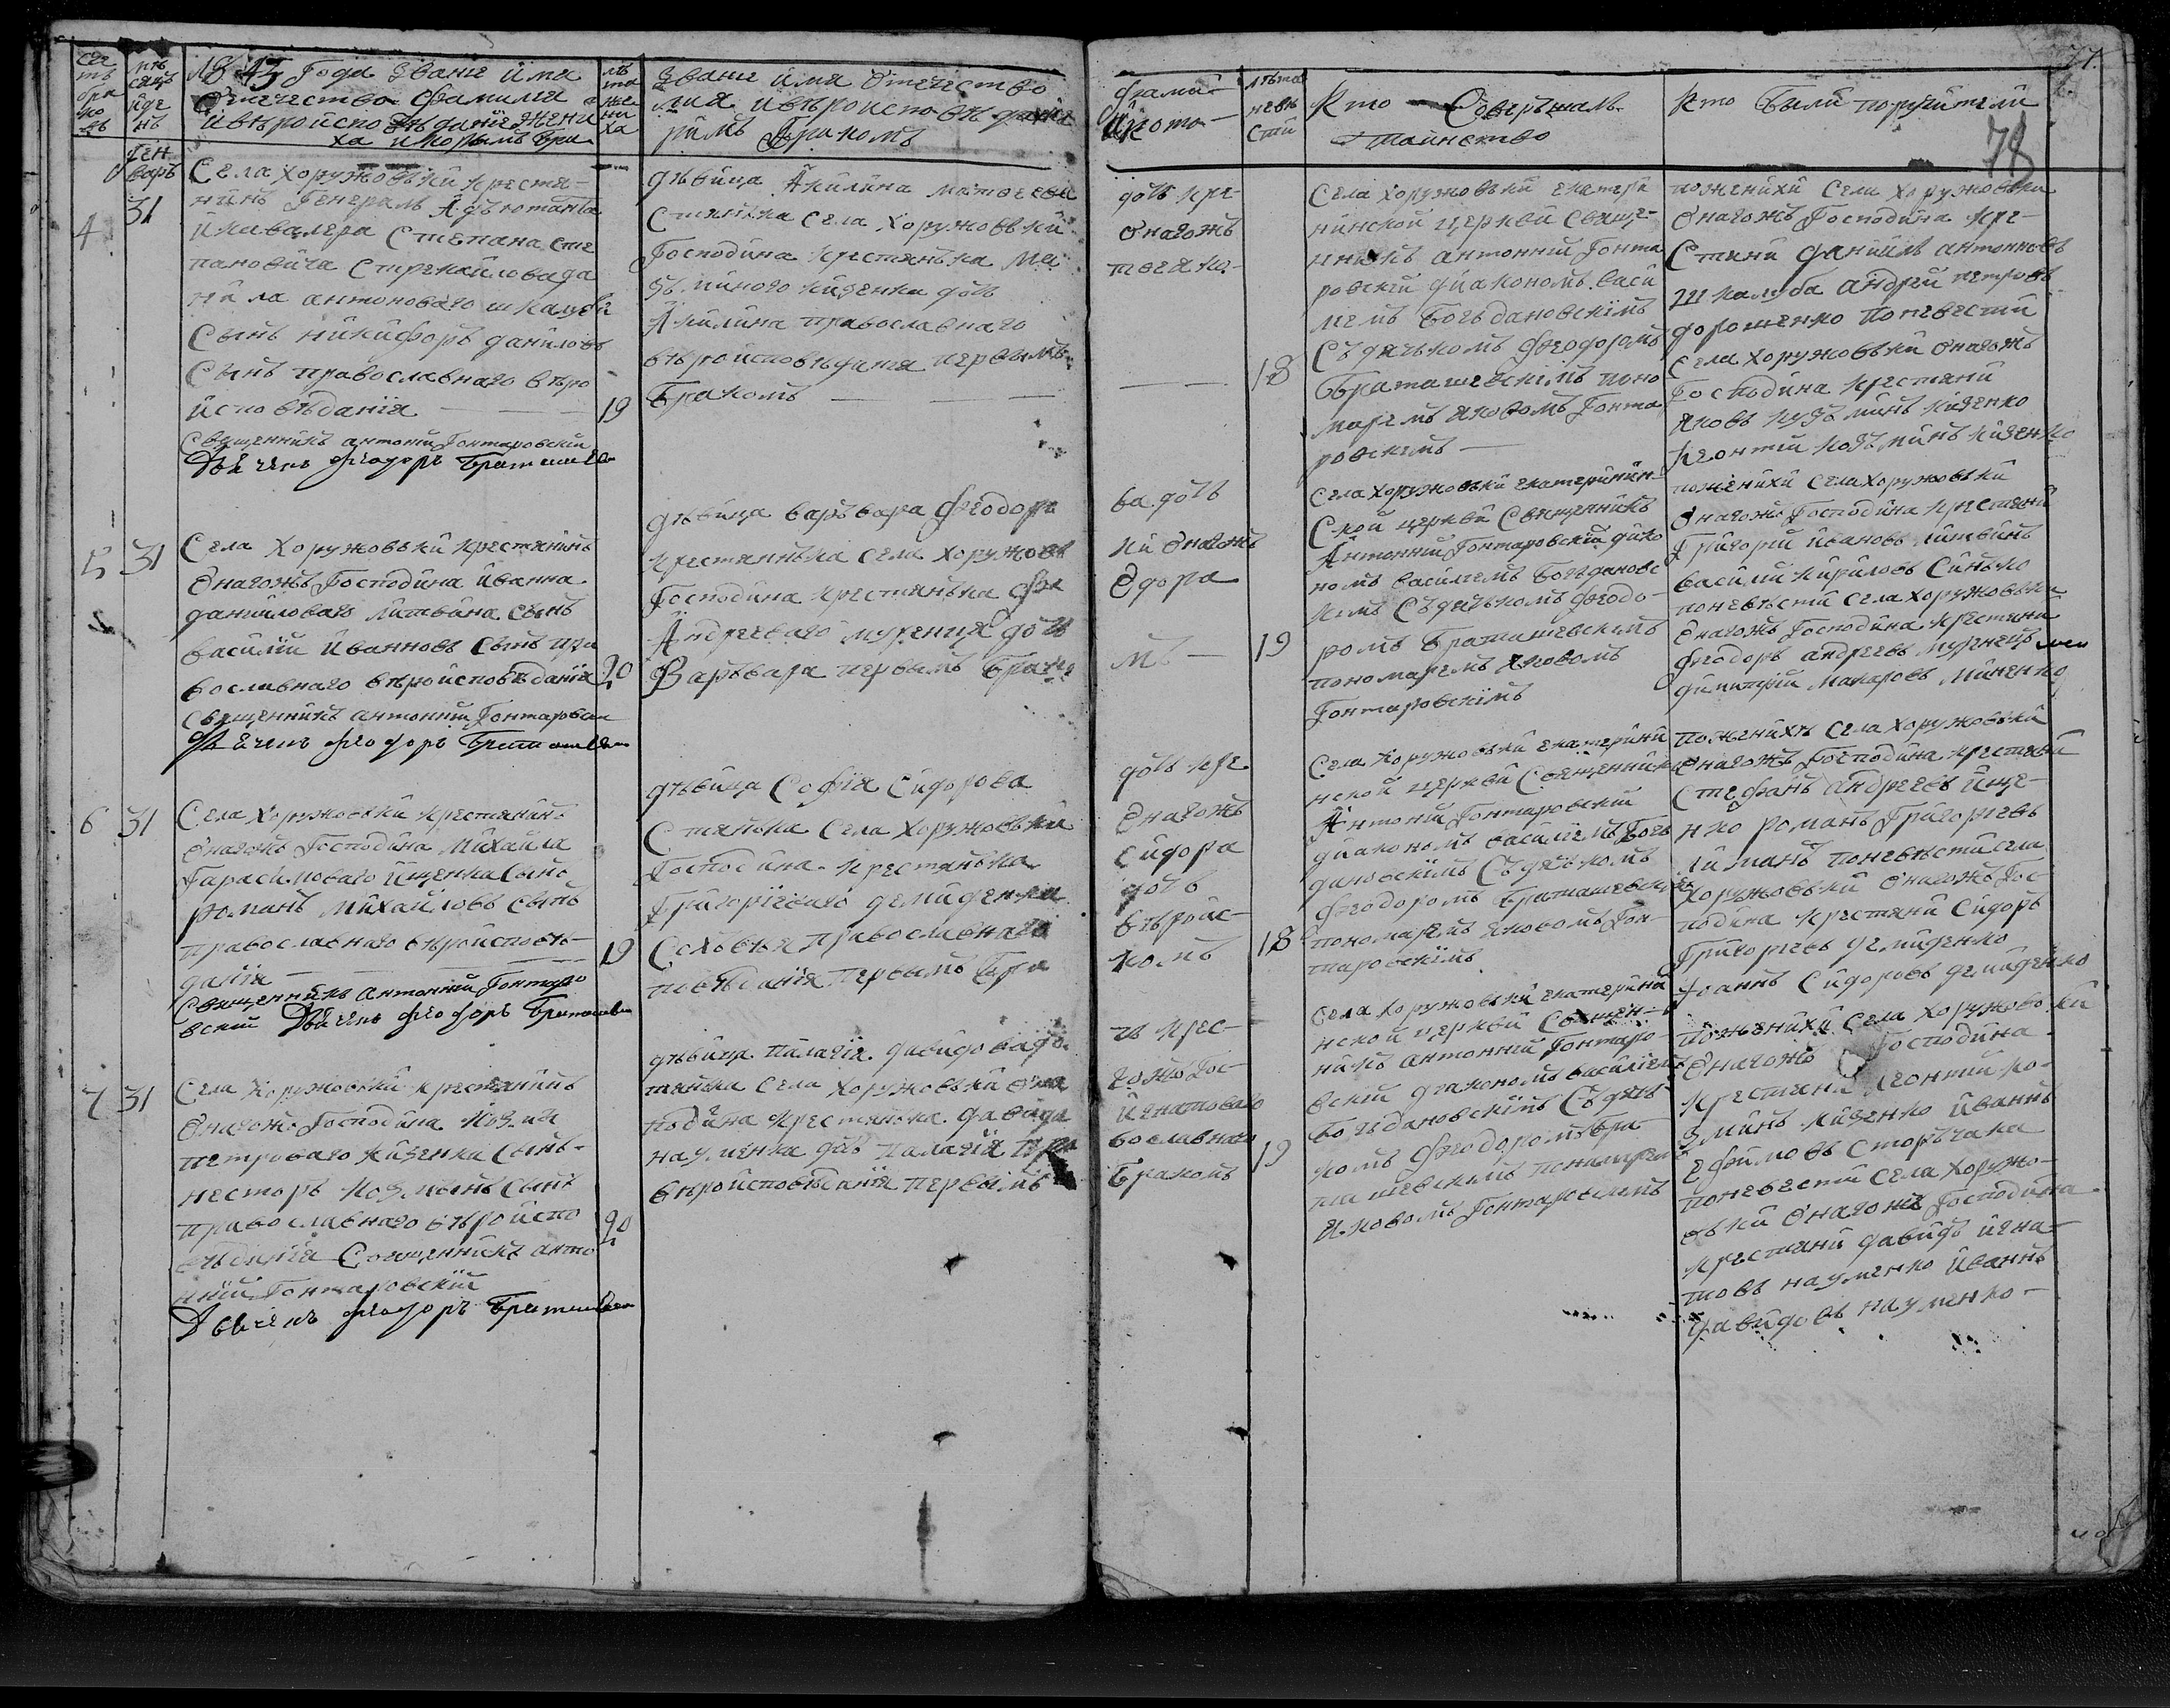 77.
78
1843 Года Звание имя
Отечество Фамилия
и вѣроисповѣдание жени
ха и коимъ бра
лѣ
та
же
ни
ха
Звание имя Отечество
лия и вѣроисповѣдание
Бракомъ
фами-
и кото-
лѣта
невѣ
сти
Кто Совершалъ
таинство
Кто были поручители
Ген
варъ
4
31
Села Хоружовьки крестя-
нинъ Генералъ Адъютанта
и кавалера Степана Сте
пановича Стрекаловада
нила антоноваго
Сынъ никифоръ даниловъ
Сынъ православнаго вѣро
исповѣдания
19
Священникъ антоний Гонтаровский
Дьячекъ феодоръ
дѣвица Акилина
Стянка Села Хоружовьки
Господина крестянька
Киценка доч
Акилина православнаго
вѣроисповѣдания первымъ
Бракомъ
доч кре-
онагожъ
18
Села Хоружовьки екатери
нинской церкви Свяще-
нникъ антонний Гонта
ровский диакономъ Васи
лемъ Богдановскимъ
Съ дячькомъ феодоромъ
Браташевскимъ поно
маремъ яковомъ Гонта
ровскимъ
по женихи Села Хоружовьки
Онагожъ Господина кре-
Стяни Даниилъ антоновъ
Шкалуба андрей петровъ
дорошенко по невести
Села Хоружовьки онагожъ
Господина крестяни
яковъ кузьминъ киценко
Леонтий козьминъ киценко
5
31
Села Хоружовьки крестянинъ
Онагожъ Господина Иванна
даниловаго литвина Сынъ
василий Иванновъ Сынъ пра
вославнаго вѣроисповѣдания
20
Священникъ антоний Гонтаровски
Дьячекъ феодоръ
дѣвица варъвара Феодоро
крестянька Села Хоружовь
Господина крестянька Фе
Андрееваго муренця доч
Варъвара первымъ Брако
ва доч
ки онагожъ
одора
мъ
19
Села Хоружовьки екатеринин-
Ской церкви Священникъ
Антонний Гонтаровский дияко
номъ василиемъ Богдановс
кимъ Съ дячькомъ феодо-
ромъ Браташевскимъ
пономаремъ яковомъ
Гонтаровскимъ
по женихи Села Хоружовьки
Онагожъ Господина крестяни
Григорий ивановъ литвинъ
василий кириловъ Синько
по невѣсти Села Хоружовьки
Онагожъ Господина крестяни
Феодоръ андреевъ муренецъ
димитрий макаровъ миненко
6
31
Села Хоружовьки крестянинъ
Онагожъ Господина Михаила
Гарасимоваго Ищенка Сынъ
романъ Михайловъ Сынъ
православнаго вѣроисповѣ-
дания
19
Священникъ антонний Гонтаро
вский Дьячекъ феодоръ
дѣвица София Сидорова
Стянька Села Хоружовьки
Господина крестянька
Григориеваго демиденка
Православнаго
повѣдания первымъ Бра
доч кре
Онагожъ
Сидора
доч
вѣроис-
комъ
18
Села Хоружовьки екатерини
нской церкви Священникъ
Антоний Гонтаровский
диакономъ василиемъ Богъ
дановскимъ Съ дячькомъ
Феодоромъ Браташевскимъ
пономаремъ яковомъ Гон-
таровскимъ
По женихъ Села Хоружовьки
Онагожъ Господина крестяни
Стефанъ Андреевъ Ище-
нко романъ Григориевъ
по невѣсти Села
Хоружовьки онагожъ Гос-
подина крестяни Сидоръ
Григориевъ демиденко
Иоаннъ Сидоровъ демиденко
7
31
Села Хоружовьки крестянинъ
Онагожъ Господина козми
петроваго киценка Сынъ-
несторъ козминъ Сынъ
православнаго вѣроиспо
вѣдания Священникъ анто
ний Гонтаровский
20
Дьячекъ феодоръ
дѣвица палагия давидова до
тянька Села Хоружовьки она
подина крестянька давида
науменка доч палагия пра
вѣроисповѣдания первымъ
ч крес-
гожъ Гос-
Игнатоваго
вославнаго
Бракомъ
19
Села Хоружовьки екатерини
нской церкви Священ-
никъ антонний Гонтаро-
вский диакономъ василием
Богдановскимъ Съ дячь
комъ феодоромъ Бра
ташевскимъ пономаремъ
яковомъ Гонтаровскимъ
По женихи Села Хоружовьки
Онагожъ Господина
Крестяни Леонтий ко-
зминъ киценко Иваннъ
Ефимовъ Сторъчака
по невести Села Хоружо-
вьки онагожъ Господина
крестяни давидъ игна
товъ науменко Иваннъ
давидовъ науменко